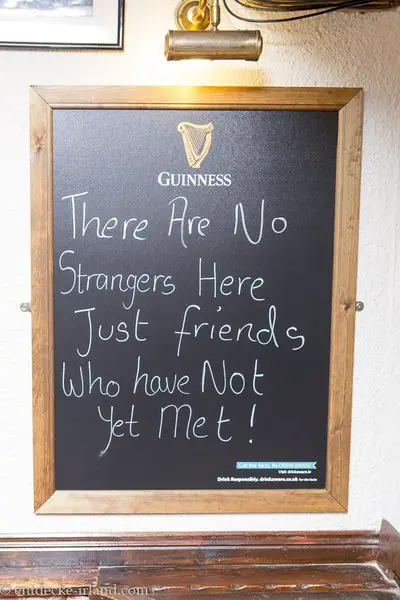 GUINNESS
There Are No
Strangers Here
Just friends
Who have Not
Yet Met!
Get the facts. Be DRINKAWARE
Visit drinkaware.ie
Drink Responsibly. drinkaware.co.uk for the facts
© entdecke-irland.com